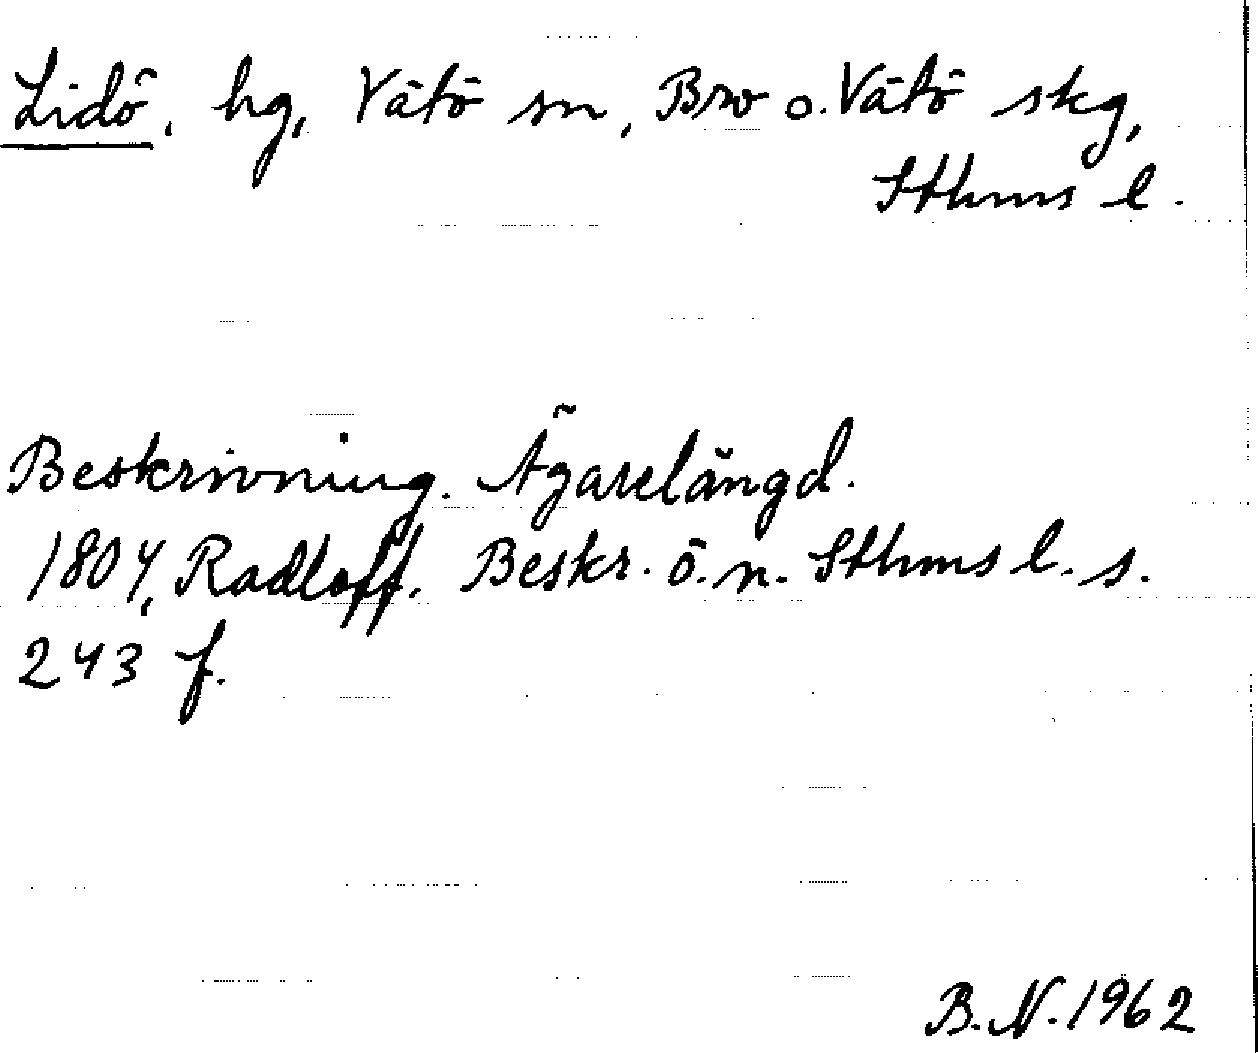 Lidö, hg, Vätö sn, Bro o. Vätö skg,
Sthms l.
Beskrivning. Ägarelängd.
1804, Radloff. Beskr. ö. n. Sthms l. s.
243 f.
B. N. 1962